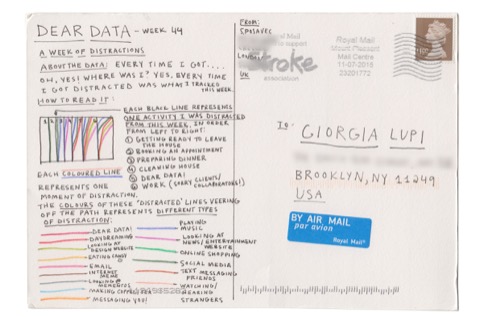 DEAR DATA - WEEK 44
A WEEK OF DISTRACTIONS
ABOUT THE DATA: EVERY TIME I GOT....
OH, YES! WHERE WAS I? YES, EVERY TIME
I GOT DISTRACTED WAS WHAT I TRACKED
THIS WEEK.
HOW TO READ IT:
EACH BLACK LINE REPRESENTS
ONE ACTIVITY I WAS DISTRACTED
FROM THIS WEEK, IN ORDER
FROM LEFT TO RIGHT:
① GETTING READY TO LEAVE
THE HOUSE
② BOOKING AN APPOINTMENT
③ PREPARING DINNER
④ CLEANING HOUSE
⑤ DEAR DATA!
⑥ WORK (SORRY CLIENTS/
COLLABORATORS!)
EACH COLOURED LINE
REPRESENTS ONE
MOMENT OF DISTRACTION.
THE COLOURS OF THESE "DISTRACTED" LINES VEERING
OFF THE PATH REPRESENTS DIFFERENT TYPES
OF DISTRACTION:
DEAR DATA!
DAYDREAMING
LOOKING AT
DESIGN WEBSITE
EATING CANDY
EMAIL
INTERNET
MEME
MEMENTOS
MESSAGING YOU!
PLAYING
MUSIC
LOOKING AT
NEWS/ENTERTAINMENT
WEBSITE
ONLINE SHOPPING
SOCIAL MEDIA
TEXT MESSAGING
FRIENDS
WATCHING/
HEARING
STRANGERS
FROM:
UK
Stroke
association
Royal Mail
Mount Pleasant
Mail Centre
11-07-2015
23201772
TO:
GIORGIA LUPI
BROOKLYN, NY 11249
USA
BY AIR MAIL
par avion
Royal Mail